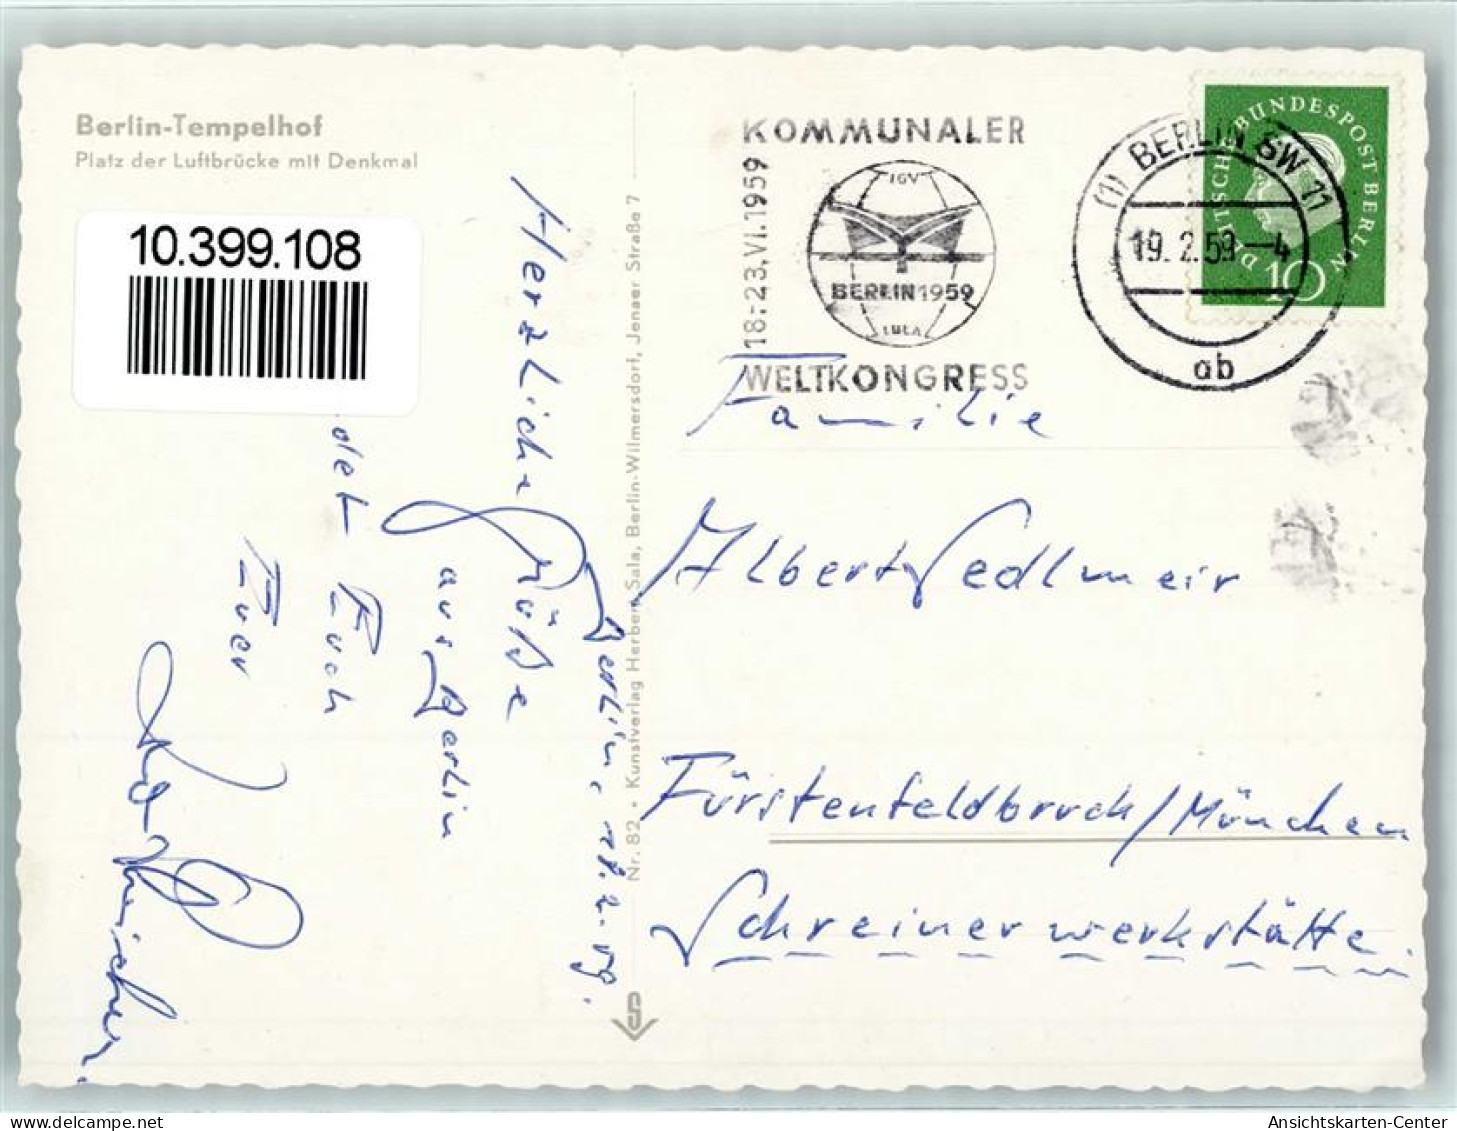 Berlin-Tempelhof
Platz der Luftbrücke mit Denkmal
10.399.108
Berlin, 18.2.59.
Herzliche Grüße
aus Berlin
det Euch
Euer
Nr. 82 • Kunstverlag Herbert Sala, Berlin-Wilmersdorf, Jenaer Straße 7
KOMMUNALER
18.-23.VI.1959
IGV
BERLIN 1959
IULA
WELTKONGRESS
(1) BERLIN SW 11
19.2.59.-4
ab
DEUTSCHE BUNDESPOST BERLIN
10
Familie
Albert Sedlmeir
Fürstenfeldbruck/München
Schreinerwerkstätte.
Ansichtskarten-Center